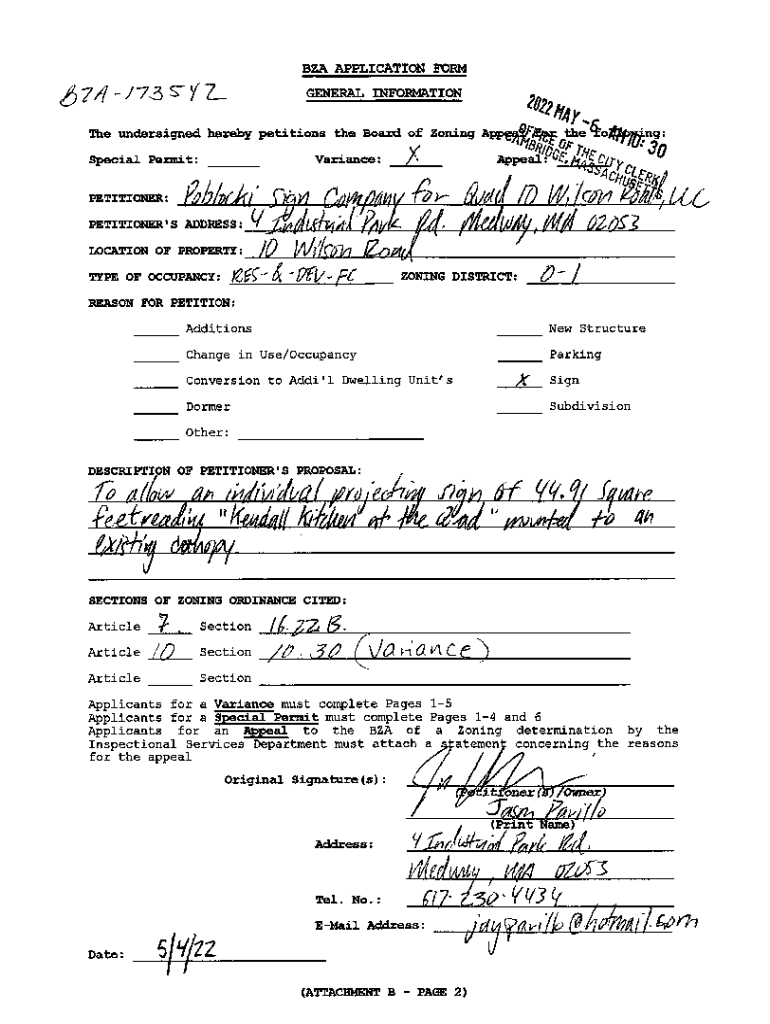 BZA APPLICATION FORM
BZA-173542 GENERAL INFORMATION
2022 MAY -6 AM 10:30
OFFICE OF THE CITY CLERK
CAMBRIDGE, MASSACHUSETTS
The undersigned hereby petitions the Board of Zoning Appeal for the following:
Special Permit: ______ Variance: X Appeal:
PETITIONER: Poblocki Sign Company for Quad 10 Wilson Road, LLC
PETITIONER'S ADDRESS: 4 Industrial Park Rd. Medway, MA 02053
LOCATION OF PROPERTY: 10 Wilson Road
TYPE OF OCCUPANCY: RES-&-DEV-FC ZONING DISTRICT: O-1
REASON FOR PETITION:
______ Additions ______ New Structure
______ Change in Use/Occupancy ______ Parking
______ Conversion to Addi'l Dwelling Unit's X Sign
______ Dormer ______ Subdivision
______ Other: ______
DESCRIPTION OF PETITIONER'S PROPOSAL:
To allow an individual projecting sign of 44.91 Square
feet reading "Kendall Kitchen at the Quad" mounted to an
existing canopy
SECTIONS OF ZONING ORDINANCE CITED:
Article 7. Section 16.22 B.
Article 10 Section 10.30 (Variance)
Article ______ Section ______
Applicants for a Variance must complete Pages 1-5
Applicants for a Special Permit must complete Pages 1-4 and 6
Applicants for an Appeal to the BZA of a Zoning determination by the
Inspectional Services Department must attach a statement concerning the reasons
for the appeal
Original Signature(s):
(Petitioner(s)/Owner)
Jason Parillo
(Print Name)
Address: 4 Industrial Park Rd.
Medway, MA 02053
Tel. No.: 617-230-4434
E-Mail Address: jayparillo@hotmail.com
Date: 5/4/22
(ATTACHMENT B - PAGE 2)